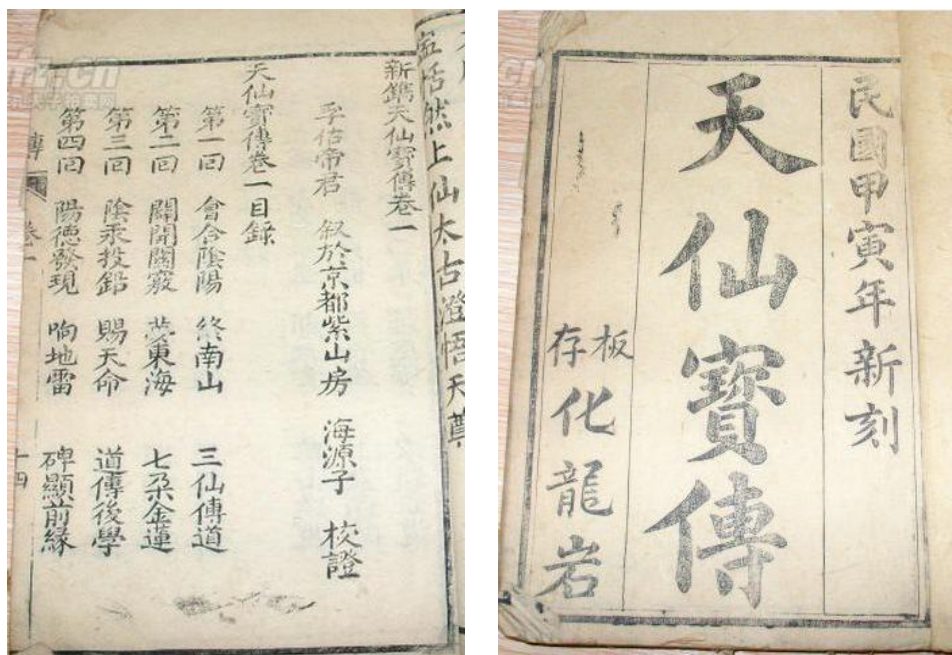 民國甲寅年新刻
天仙寶傳
板存
化龍岩
然上仙太古澄悟天尊
新鐫天仙寶傳卷一
孚佑帝君 叙於京都紫山房 海源子 校證
天仙寶傳卷一目錄
第一回 會合陰陽 終南山 三仙傳道
第二回 闢開關竅 夢東海 七朵金蓮
第三回 陰汞投鉛 賜天命 道傳後學
第四回 陽德發現 响地雷 碑顯前緣
傳 卷一 十四